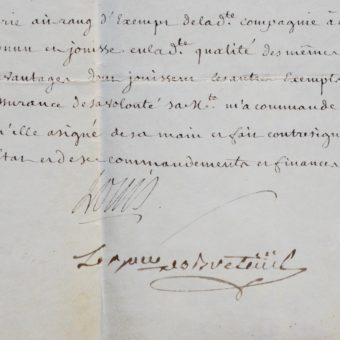 rie au rang d'Exempt de la d.te compagnie a
jouisse en la d.te qualité des mêmes
vantages dont jouissent les autres Exempts
ssurance de sa volonté sa M.té m'a commandé
qu'elle a signé de sa main et fait contresign
Etat et de ses commandements et finances
Louis
Le de Breteüil